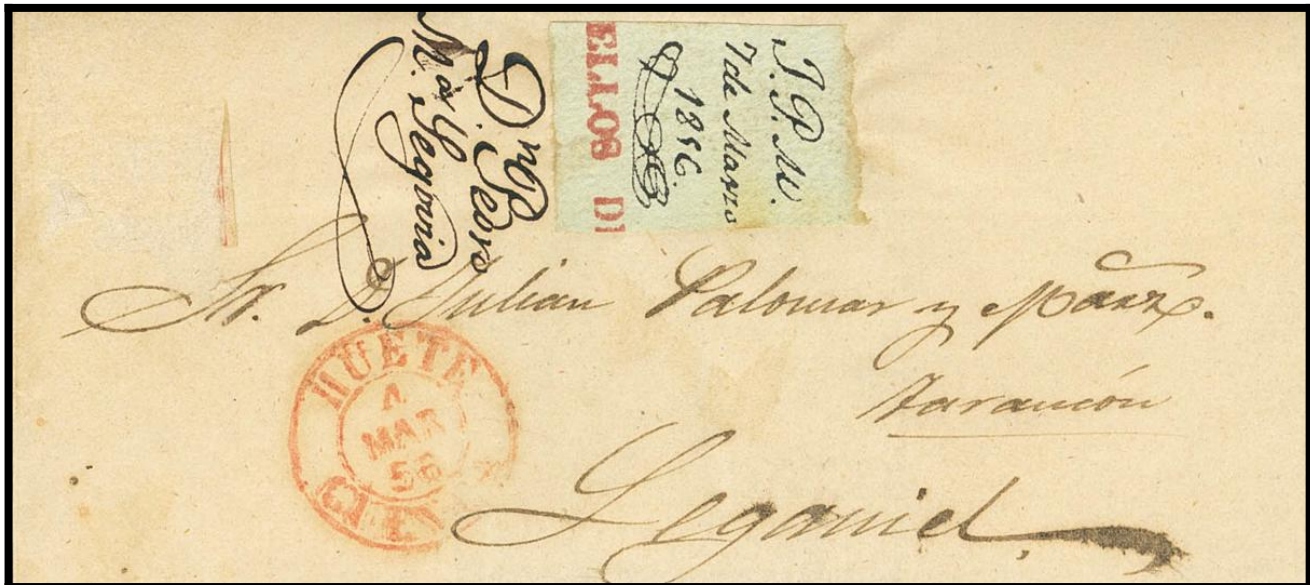 Dn. Pedro
M.a G.
Segovia
J. P. M.
7 de Marzo
1856.
ELLOS DE
Sr. D. Julian Palomar y
Tarancón
Leganiel.
HUETE
4
MAR
56
CUENCA